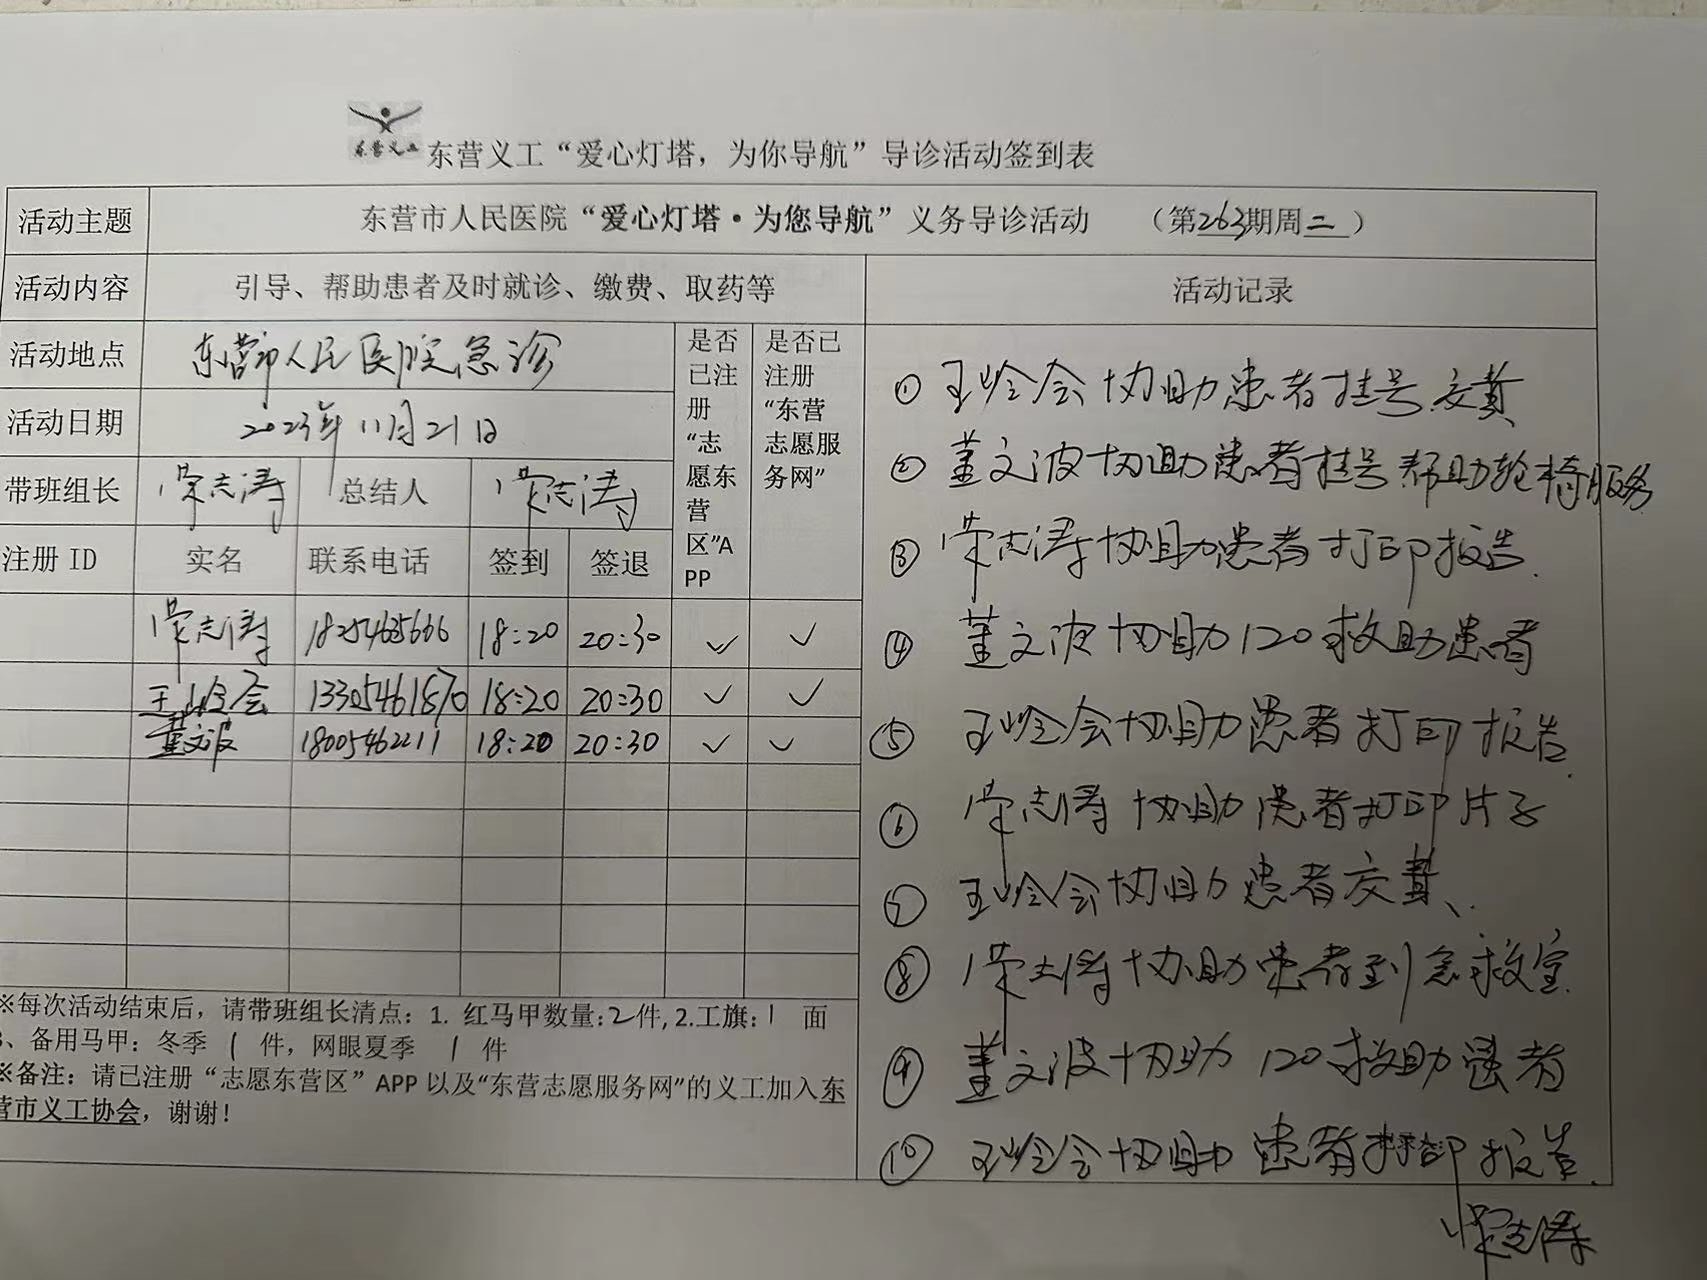 东营义工
东营义工“爱心灯塔，为你导航”导诊活动签到表
活动主题 东营市人民医院“爱心灯塔·为您导航”义务导诊活动 （第263期周二）
活动内容 引导、帮助患者及时就诊、缴费、取药等 活动记录
活动地点 东营市人民医院急诊
活动日期 2023年11月21日
带班组长 荣志涛 总结人 荣志涛
是否已注册“志愿东营区”APP
是否已注册“东营志愿服务网”
注册 ID 实名 联系电话 签到 签退
荣志涛 18254635666 18:20 20:30 ✓ ✓
王岭会 13305461870 18:20 20:30 ✓ ✓
董文波 18005462211 18:20 20:30 ✓ ✓
※每次活动结束后，请带班组长清点：1. 红马甲数量:2件, 2.工旗: 1 面
3、备用马甲：冬季 1 件，网眼夏季 1 件
※备注：请已注册“志愿东营区”APP 以及“东营志愿服务网”的义工加入东
营市义工协会，谢谢！
① 王岭会协助患者挂号交费
② 董文波协助患者挂号帮助轮椅服务
③ 荣志涛协助患者打印报告.
④ 董文波协助120救助患者
⑤ 王岭会协助患者打印报告.
⑥ 荣志涛协助患者打印片子
⑦ 王岭会协助患者交费、.
⑧ 荣志涛协助患者到急救室.
⑨ 董文波协助120救助患者
⑩ 王岭会协助患者打印报告.
荣志涛